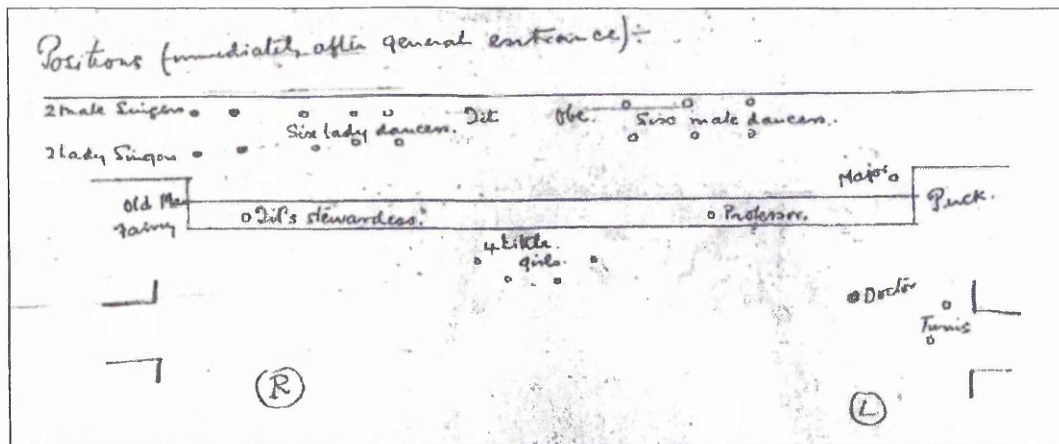 Positions (immediately after general entrance) :-
2 male Singers
Tit
Obe.
Six lady dancers.
Six male dancers.
2 lady Singers
Major
Old Man
Fairy
Tit's stewardess.
Professor.
Puck.
4 little
girls.
Doctor
Tunis
R
L